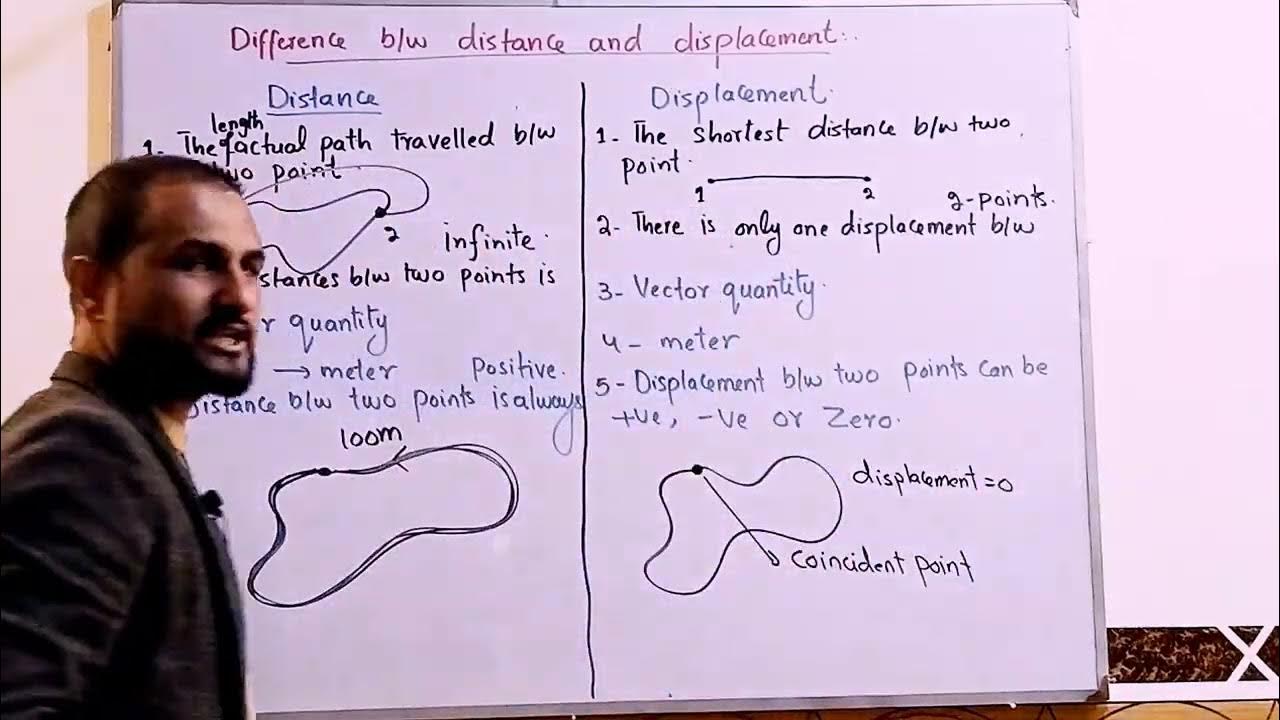 Difference b/w distance and displacement:.
Distance
length
1. The actual path travelled b/w
two point.
2
infinite.
stances b/w two points is
r quantity
→ meter positive.
Distance b/w two points is always
100m
Displacement.
1- The shortest distance b/w two
point.
1 2
2-points.
2- There is only one displacement b/w
3- Vector quantity.
4- meter
5- Displacement b/w two points can be
+ve, -ve or Zero.
displacement = 0
coincident point
X